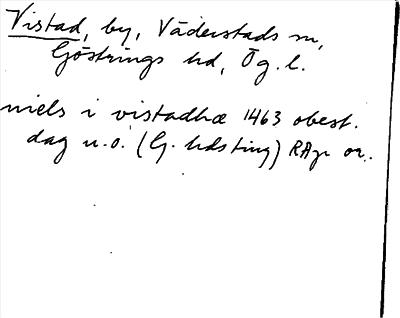 Vistad, by, Väderstads sn,
Göstrings hd, Ög. l.
niels i vistadhæ 1463 obest.
dag u.o. (G. hdsting) RAp or.